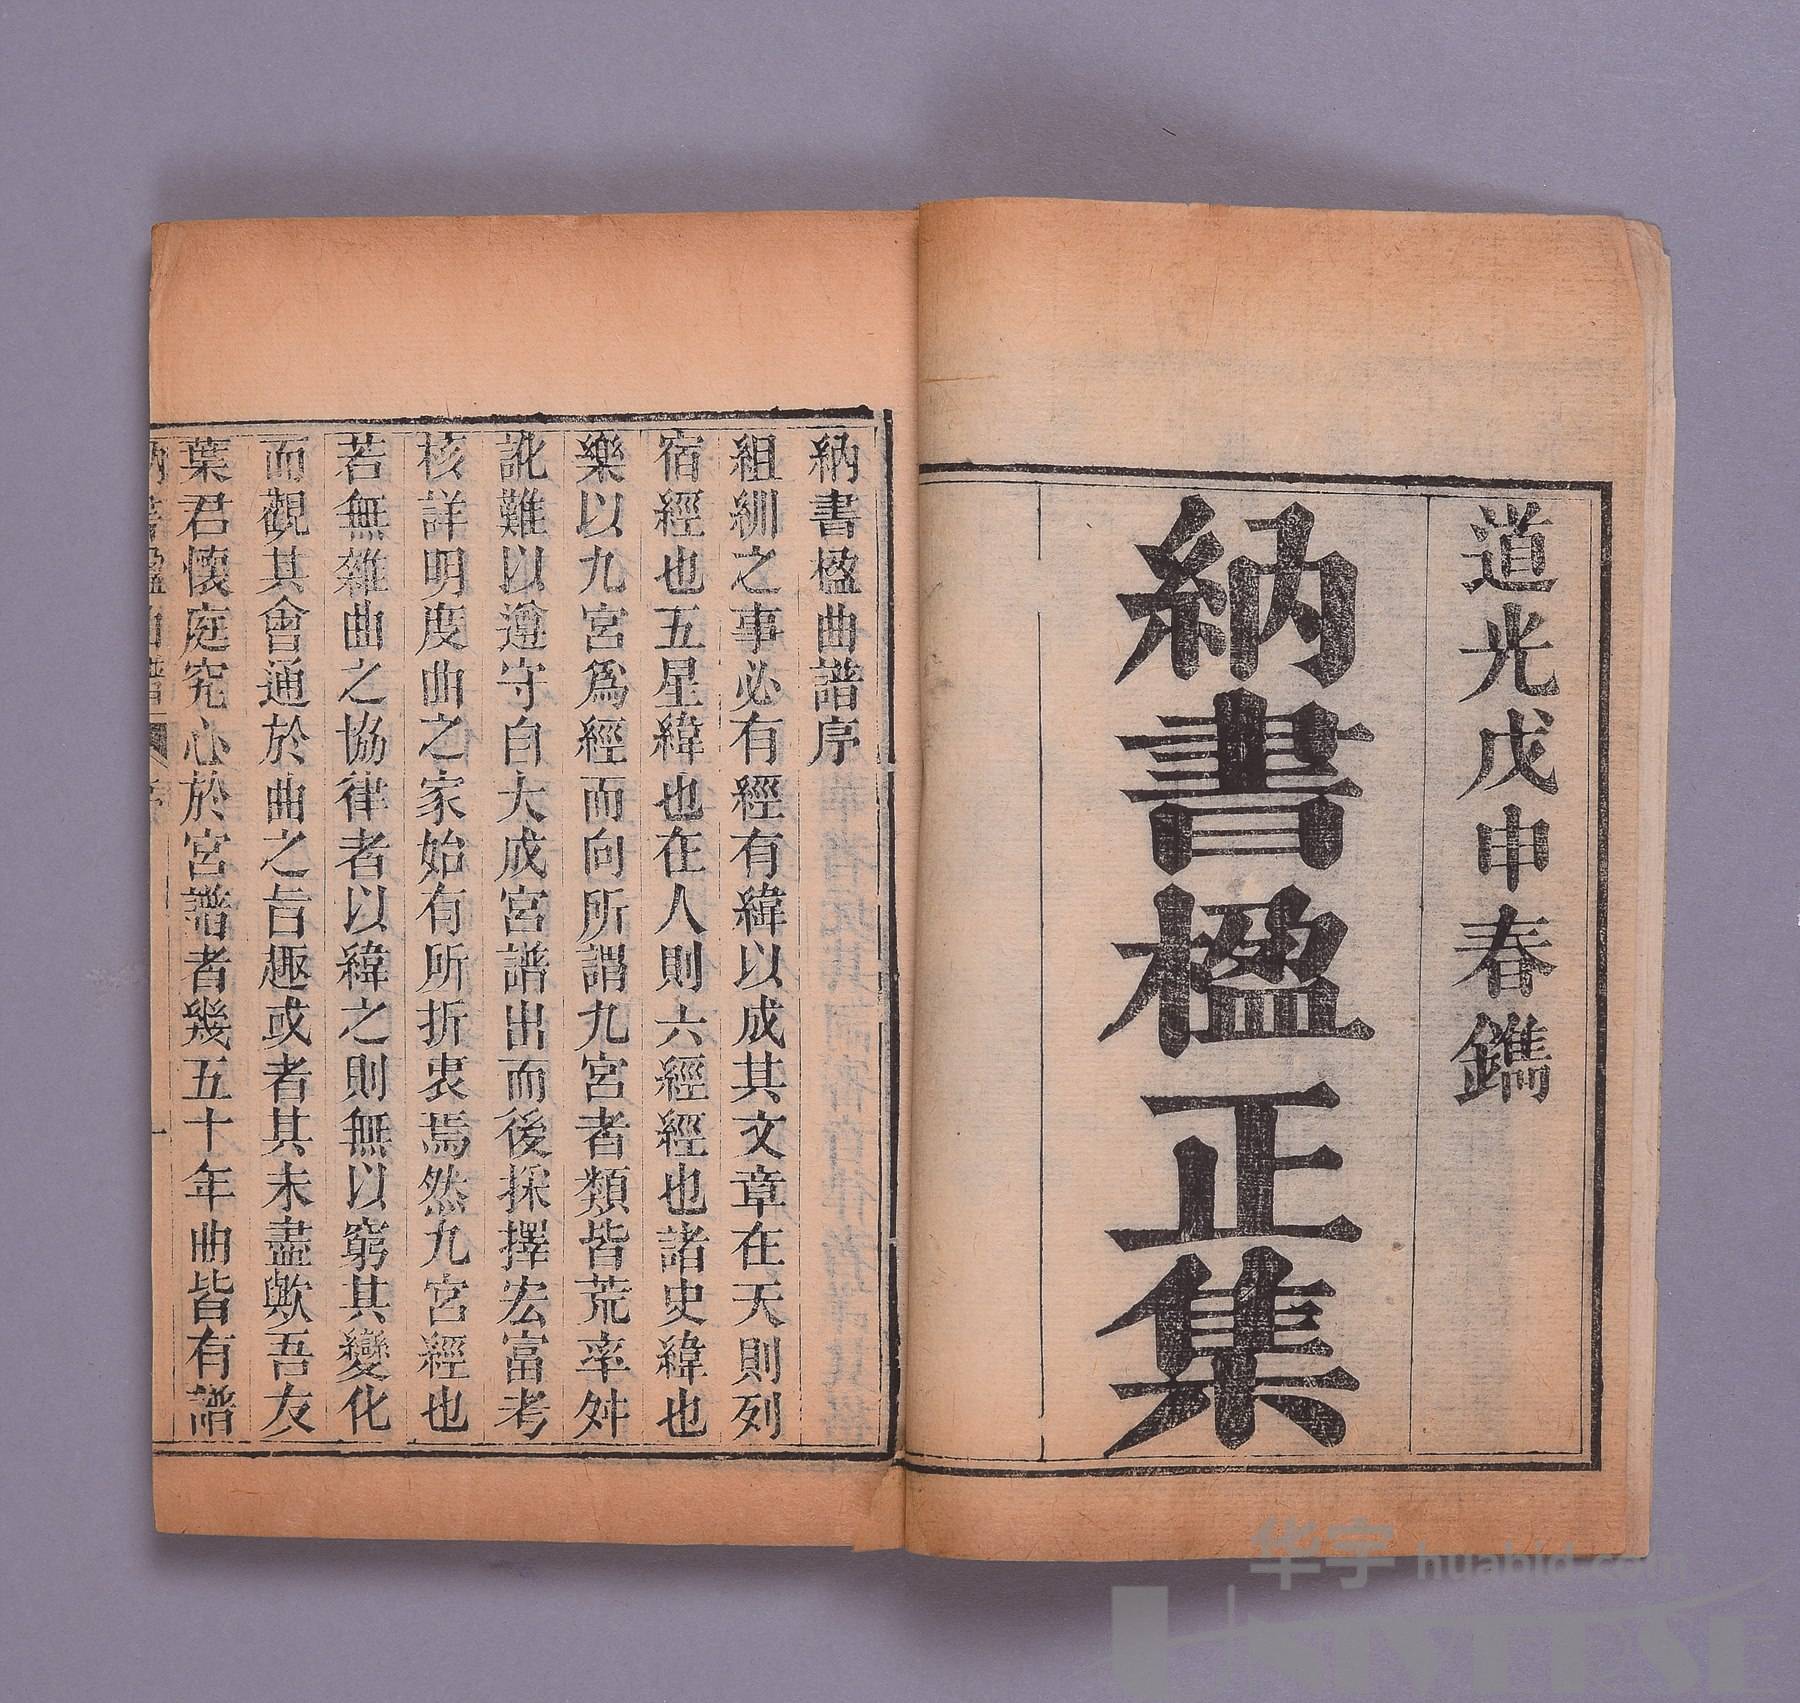 道光戊申春鐫
納書楹正集
納書楹曲譜序
組紃之事必有經有緯以成其文章在天則列
宿經也五星緯也在人則六經經也諸史緯也
樂以九宮爲經而向所謂九宮者類皆荒率舛
訛難以遵守自大成宮譜出而後採擇宏富考
核詳明度曲之家始有所折衷焉然九宮經也
若無雜曲之協律者以緯之則無以窮其變化
而觀其會通於曲之旨趣或者其未盡歟吾友
葉君懷庭究心於宮譜者幾五十年曲皆有譜
华宇 huabid.com